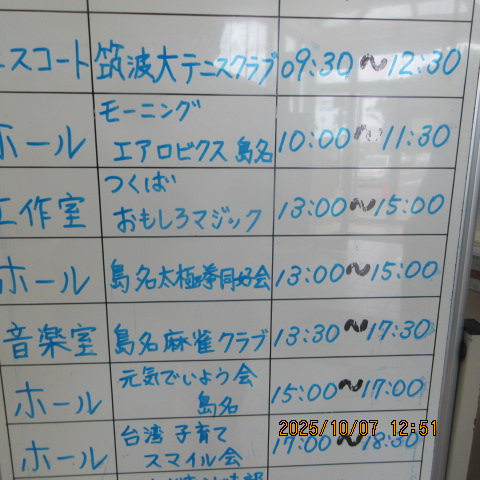 ニスコート 筑波大テニスクラブ 09:30～12:30
ホール モーニング
エアロビクス 島名 10:00～11:30
工作室 つくば
おもしろマジック 13:00～15:00
ホール 島名太極拳同好会 13:00～15:00
音楽室 島名麻雀クラブ 13:30～17:30
ホール 元気でいよう会
島名 15:00～17:00
ホール 台湾子育て
スマイル会 17:00～18:30
2025/10/07 12:51